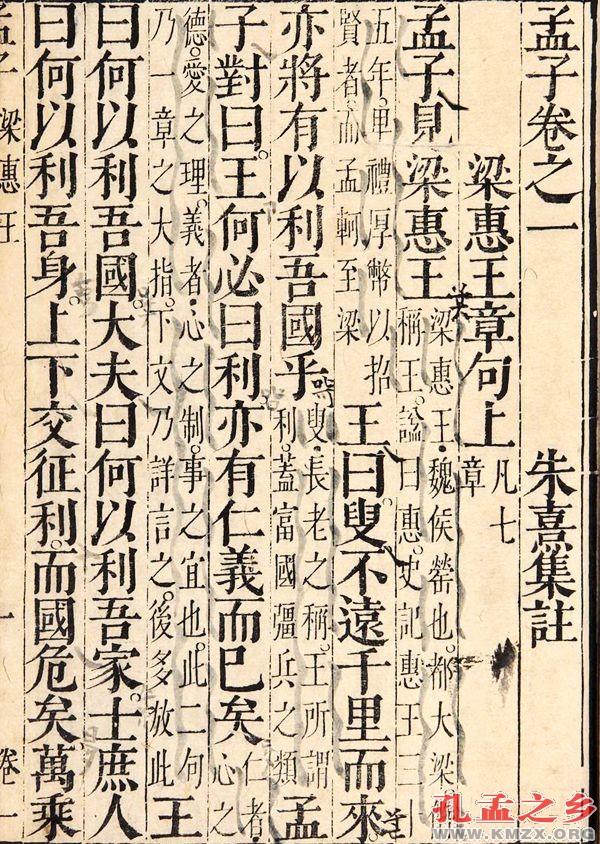 孟子卷之一 朱熹集註
梁惠王章句上
凡七
章
孟子見梁惠王
梁惠王。魏侯罃也。都大梁。僭
稱王。諡曰惠。史記惠王三
五年。卑禮厚幣以招
賢者。而孟軻至梁
王曰。叟不遠千里而來。
亦將有以利吾國乎
叟。長老之稱。王所謂
利。蓋富國彊兵之類
孟
子對曰。王何必曰利。亦有仁義而已矣
仁者。
心之
德。愛之理。義者。心之制。事之宜也。此二句
乃一章之大指。下文乃詳言之。後多放此
王
曰何以利吾國。大夫曰何以利吾家。士庶人
曰何以利吾身。上下交征利。而國危矣。萬乘
孟子 梁惠王 卷一 一
孔孟之乡
WWW.KMZX.ORG